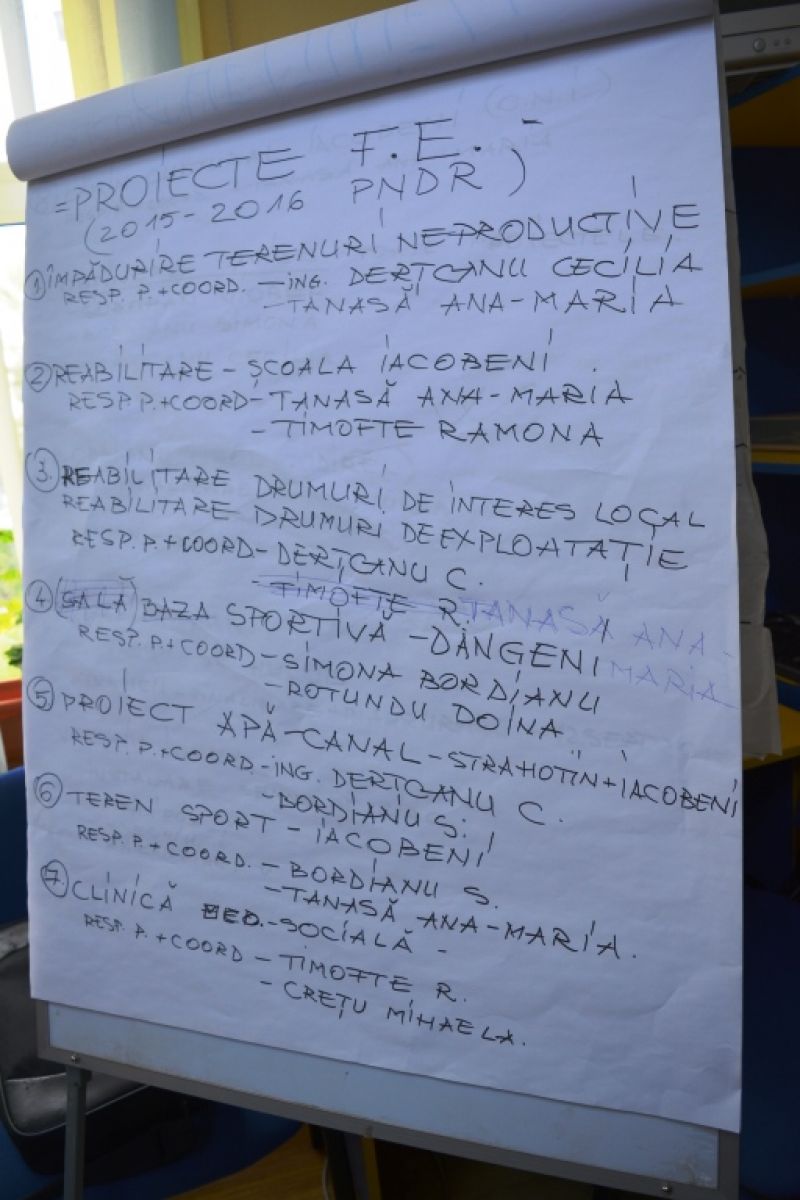 =PROIECTE F.E. -
(2015-2016 PNDR)
① ÎMPĂDURIRE TERENURI NEPRODUCTIVE
RESP. P.+COORD. - ING. DERȚCANU CECILIA
- TANASĂ ANA-MARIA
② REABILITARE - ȘCOALA IACOBENI.
RESP. P.+COORD - TANASĂ ANA-MARIA
- TIMOFTE RAMONA
③. REABILITARE DRUMURI DE INTERES LOCAL
REABILITARE DRUMURI DE EXPLOATAȚIE
RESP. P.+COORD - DERȚCANU C.
- TIMOFTE R. TANASĂ ANA-
MARIA
④ (SALĂ) BAZA SPORTIVĂ - DÂNGENI
RESP. P.+COORD - SIMONA BORDIANU
- ROTUNDU DOINA
⑤ PROIECT APĂ-CANAL - STRAHOTIN+IACOBENI
RESP. P.+COORD - ING. DERȚCANU C.
- BORDIANU S.
⑥ TEREN SPORT - IACOBENI
RESP. P.+COORD. - BORDIANU S.
- TANASĂ ANA-MARIA.
⑦ CLINICĂ MED.-SOCIALĂ -
RESP. P.+COORD - TIMOFTE R.
- CREȚU MIHAELA.